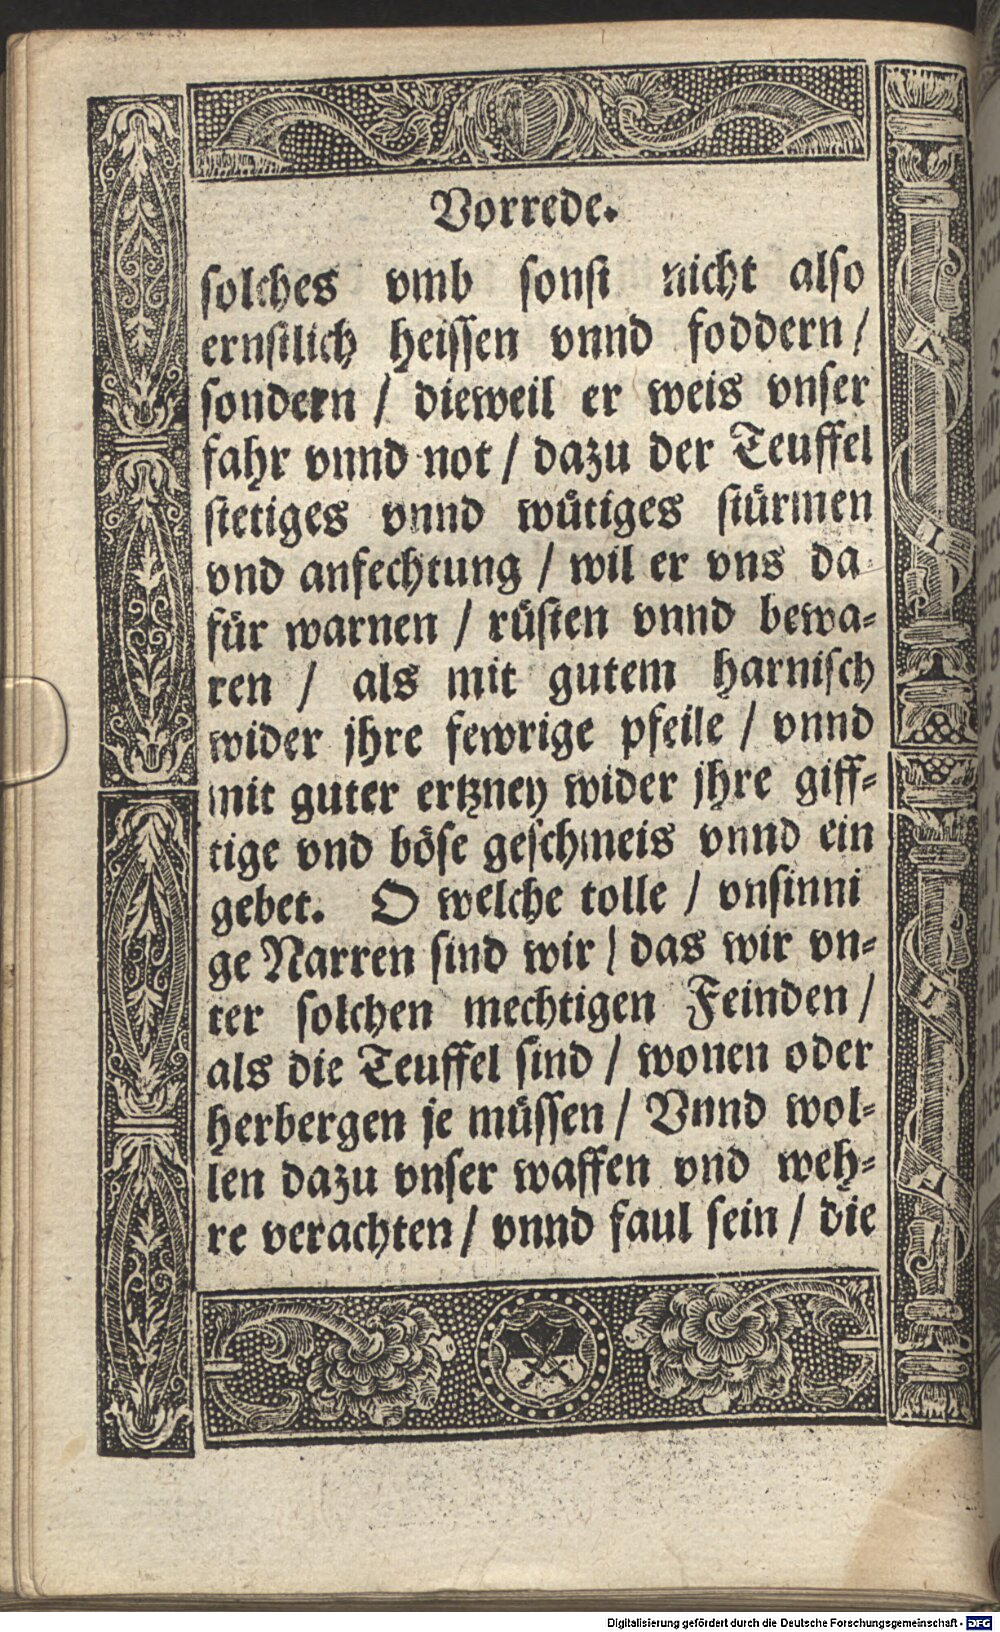 Vorrede.
solches vmb sonst nicht also
ernstlich heissen vnnd foddern /
sondern / dieweil er weis vnser
fahr vnnd not / dazu der Teuffel
stetiges vnnd wütiges stürmen
vnd anfechtung / wil er vns da
für warnen / rüsten vnnd bewa-
ren / als mit gutem harnisch
wider jhre fewrige pfeile / vnnd
mit guter ertzney wider jhre giff-
tige vnd böse geschmeis vnnd ein
gebet. O welche tolle / vnsinni
ge Narren sind wir / das wir vn-
ter solchen mechtigen Feinden /
als die Teuffel sind / wonen oder
herbergen je müssen / Vnnd wol-
len dazu vnser waffen vnd weh-
re verachten / vnnd faul sein / die
Digitalisierung gefördert durch die Deutsche Forschungsgemeinschaft - DFG